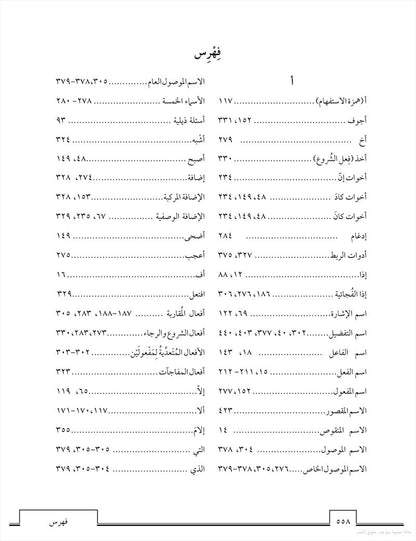 فِهْرِس
أ
أ (همزة الاستفهام) ........................ ١١٧
أجوف ........................ ١٥٢، ٣٣١
أخ ........................ ٢٧٩
أخذ (فِعل الشُروع) ........................ ٣٣٠
أخوات إنّ ........................ ٢٣٤
أخوات كادَ ........................ ٤٨، ١٤٩، ٢٣٤
أخوات كانَ ........................ ٤٨، ١٤٩، ٢٣٤
إدغام ........................ ٢٨٤
أدوات الربط ........................ ٣٢٧، ٣٧٥
إذا ........................ ١٢، ٨٨
إذا الفُجائية ........................ ١٨٦، ٢٧٦، ٣٠٦
اسم الإشارة ........................ ٦٩، ١٢٢
اسم التفضيل ........................ ٣٠٢، ٤٠، ٣٧٧، ٤٠٣، ٤٤٠
اسم الفاعل ........................ ١٨، ١٤٣
اسم الفعل ........................ ١٥، ٢١١-٢١٢
اسم المفعول ........................ ١٥٢، ٢٧٧
الاسم المقصور ........................ ٤٢٣
الاسم المنقوص ........................ ١٤
الاسم الموصول ........................ ٣٠٤، ٣٧٨
الاسم الموصول الخاص ..... ٢٧٦، ٣٠٥، ٣٧٨-٣٧٩
الاسم الموصول العام .............. ٣٠٥، ٣٧٨-٣٧٩
الأسماء الخمسة ........................ ٢٧٨-٢٨٠
أسئلة ذيلية ........................ ٩٣
أشْبَه ........................ ٣٢٤
أصبح ........................ ٤٨، ١٤٩
إضافة ........................ ٢٧٤، ٣٢٨
الإضافة المركبة ........................ ١٥٣، ٣٢٨
الإضافة الوصفية ................ ٦٧، ٢٣٥، ٣٢٩
أضحى ........................ ١٤٩
أعجب ........................ ٢٧٥
أف ........................ ١٦
افتعل ........................ ٣٢٩
أفعال المُقاربة .......... ١٨٧-١٨٨، ٢٨٣، ٣٠٥
أفعال الشروع والرجاء ............ ٢٧٣، ٢٨٣، ٣٣٠
الأفعال المُتعدّيةُ لِمَفْعولَيْن ........... ٣٠٢-٣٠٣
أفعال المفاجآت ........................ ٣٢٣
إلّا ........................ ٦٥، ١١٩
ألا ........................ ١١٧، ١٧٠-١٧١
إلامَ ........................ ٣٥٥
التي ........................ ٣٠٥-٣٠٥، ٣٧٩
الذي ........................ ٣٠٤-٣٠٥، ٣٧٩
٥٥٨
فهرس